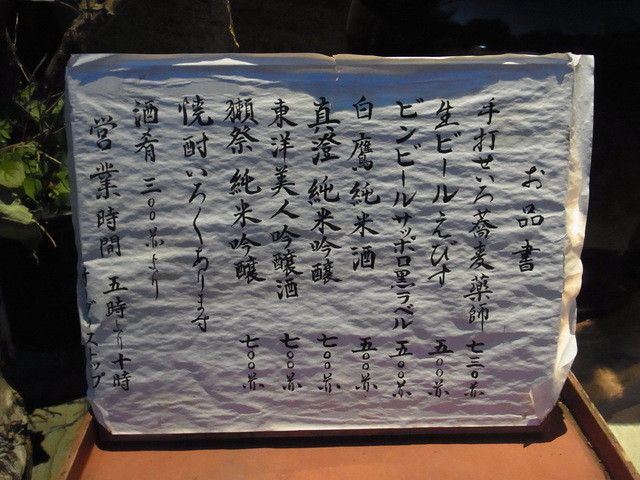 お品書
手打せいろ蕎麦薬師 七三〇円
生ビールえびす 五〇〇円
ビンビールサッポロ黒ラベル 五〇〇円
白鷹純米酒 五〇〇円
真澄 純米吟醸 七〇〇円
東洋美人吟醸酒 七〇〇円
獺祭 純米吟醸 七〇〇円
焼酎いろ〱あります
酒肴 三〇〇円より
営業時間 五時より十時
オーダーストップ